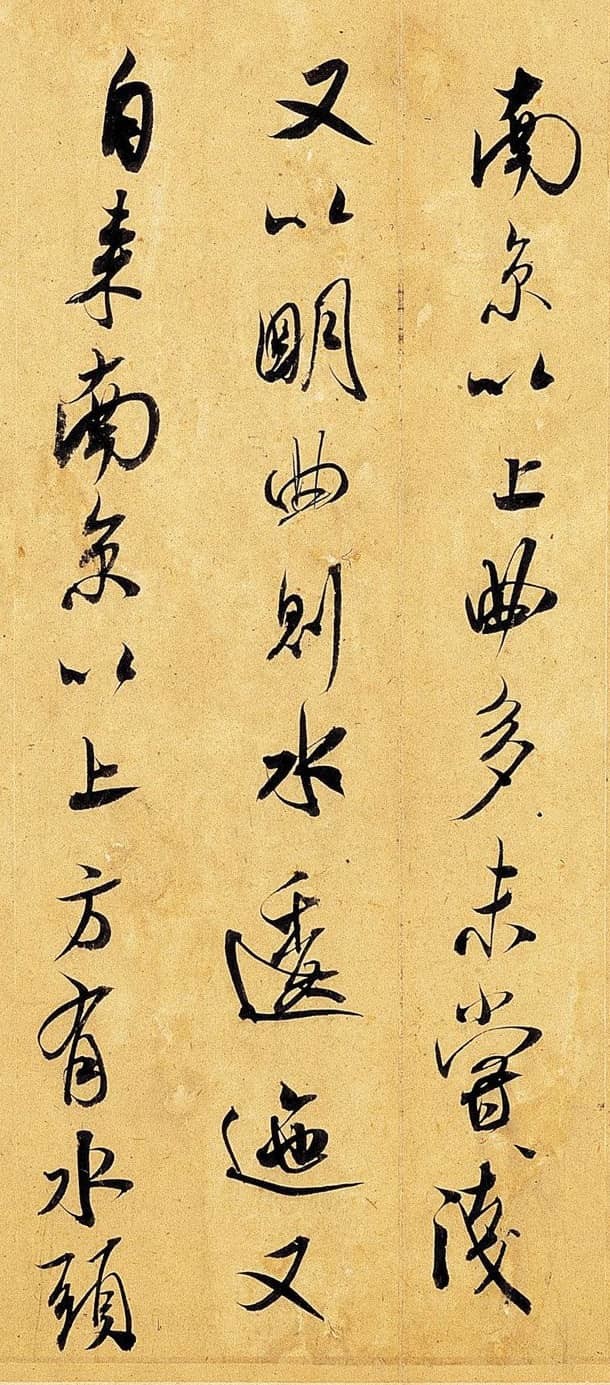 南京以上曲多未嘗淺
又以明曲則水逶迤又
自来南京以上方有水頭